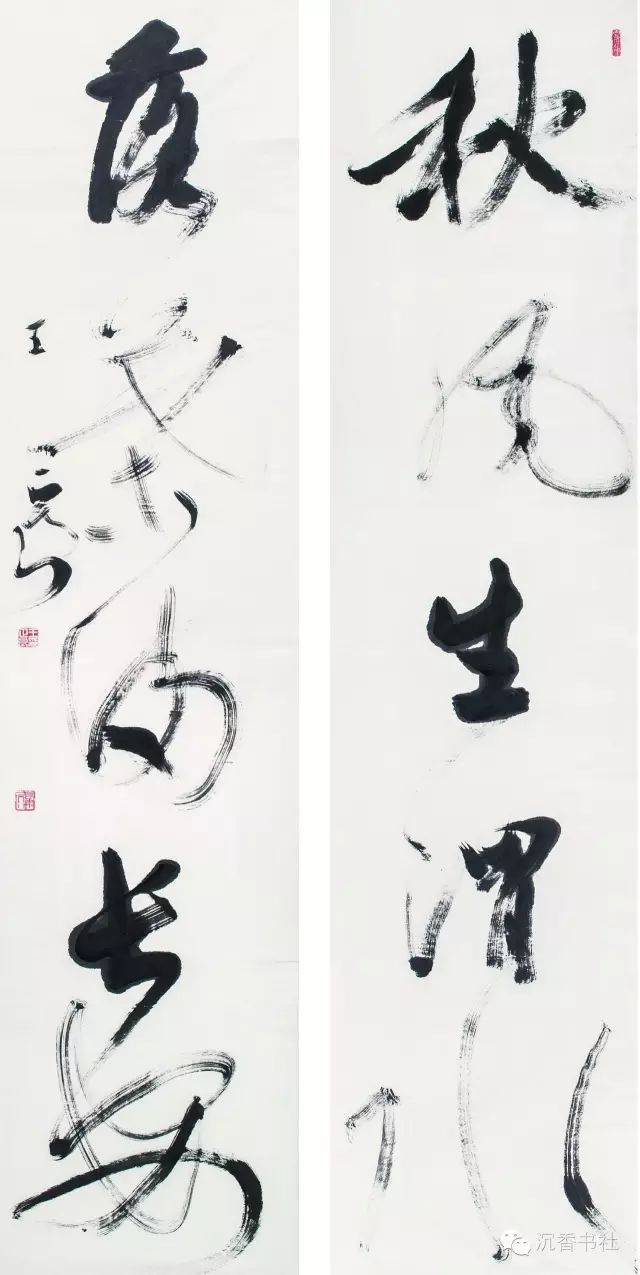 秋风生渭水
落葉满长安
王
沉香书社